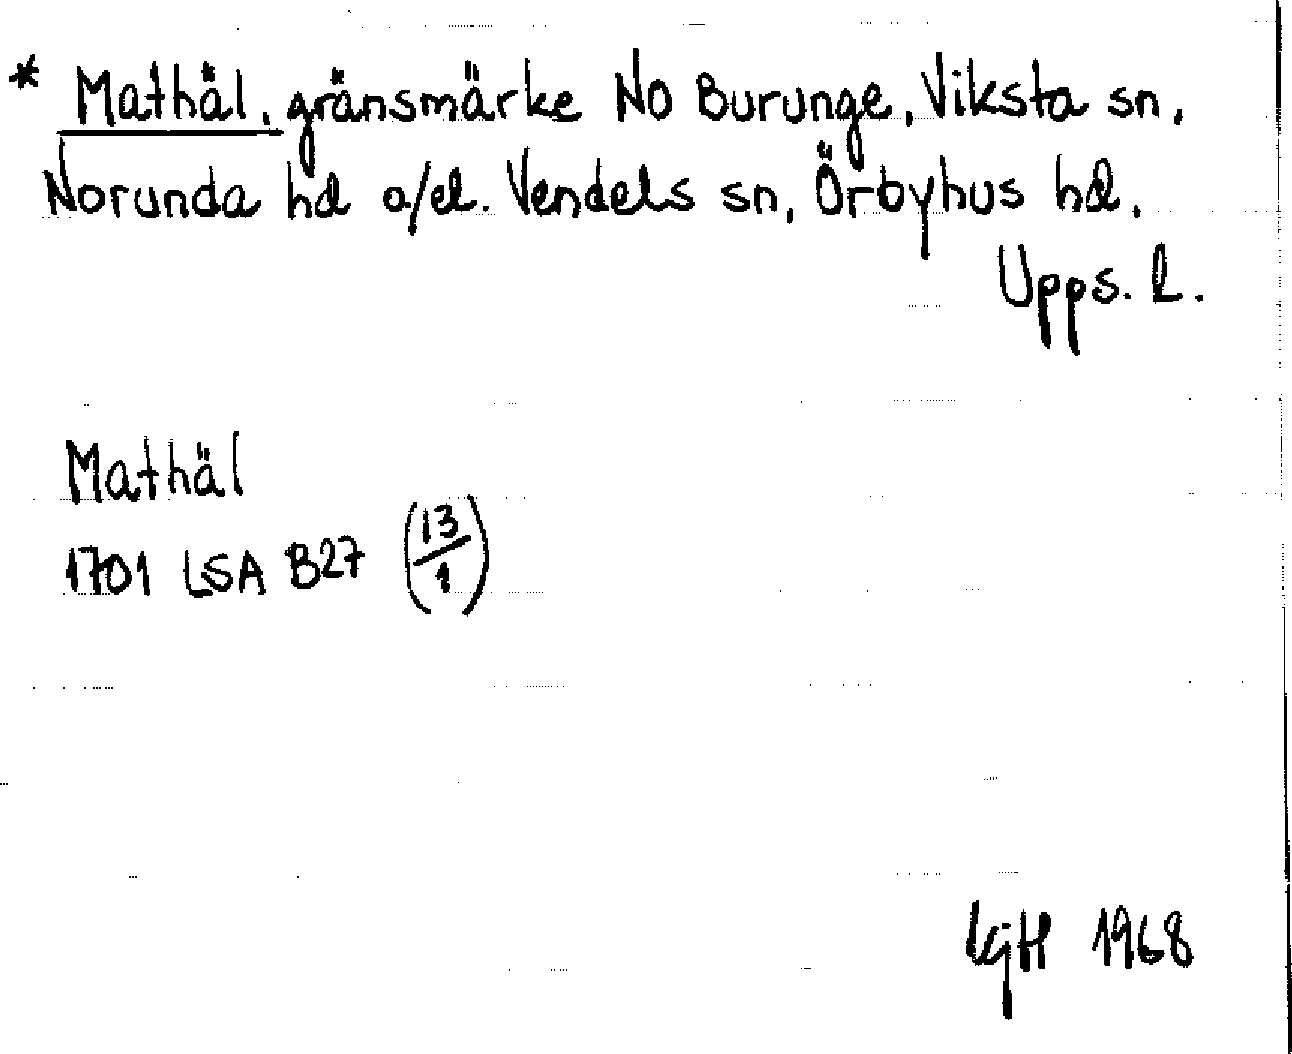 * Mathäl, gränsmärke NO Burunge, Viksta sn,
Norunda hd o/el. Vendels sn, Örbyhus hd,
Upps. l.
Mathäl
1701 LSA B27 (13/1)
LgH 1968